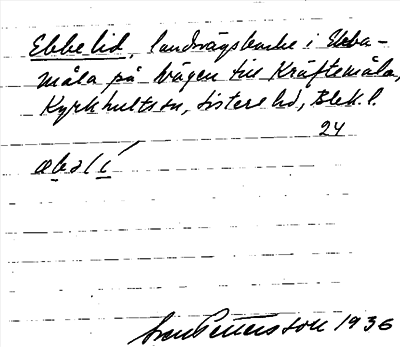 Ebbe lid, landsvägsbacke i Ebba-
måla på vägen till Kräftemåla,
Kyrkhults sn, Listers hd, Blek. l.
24
Sven Petersson 1936